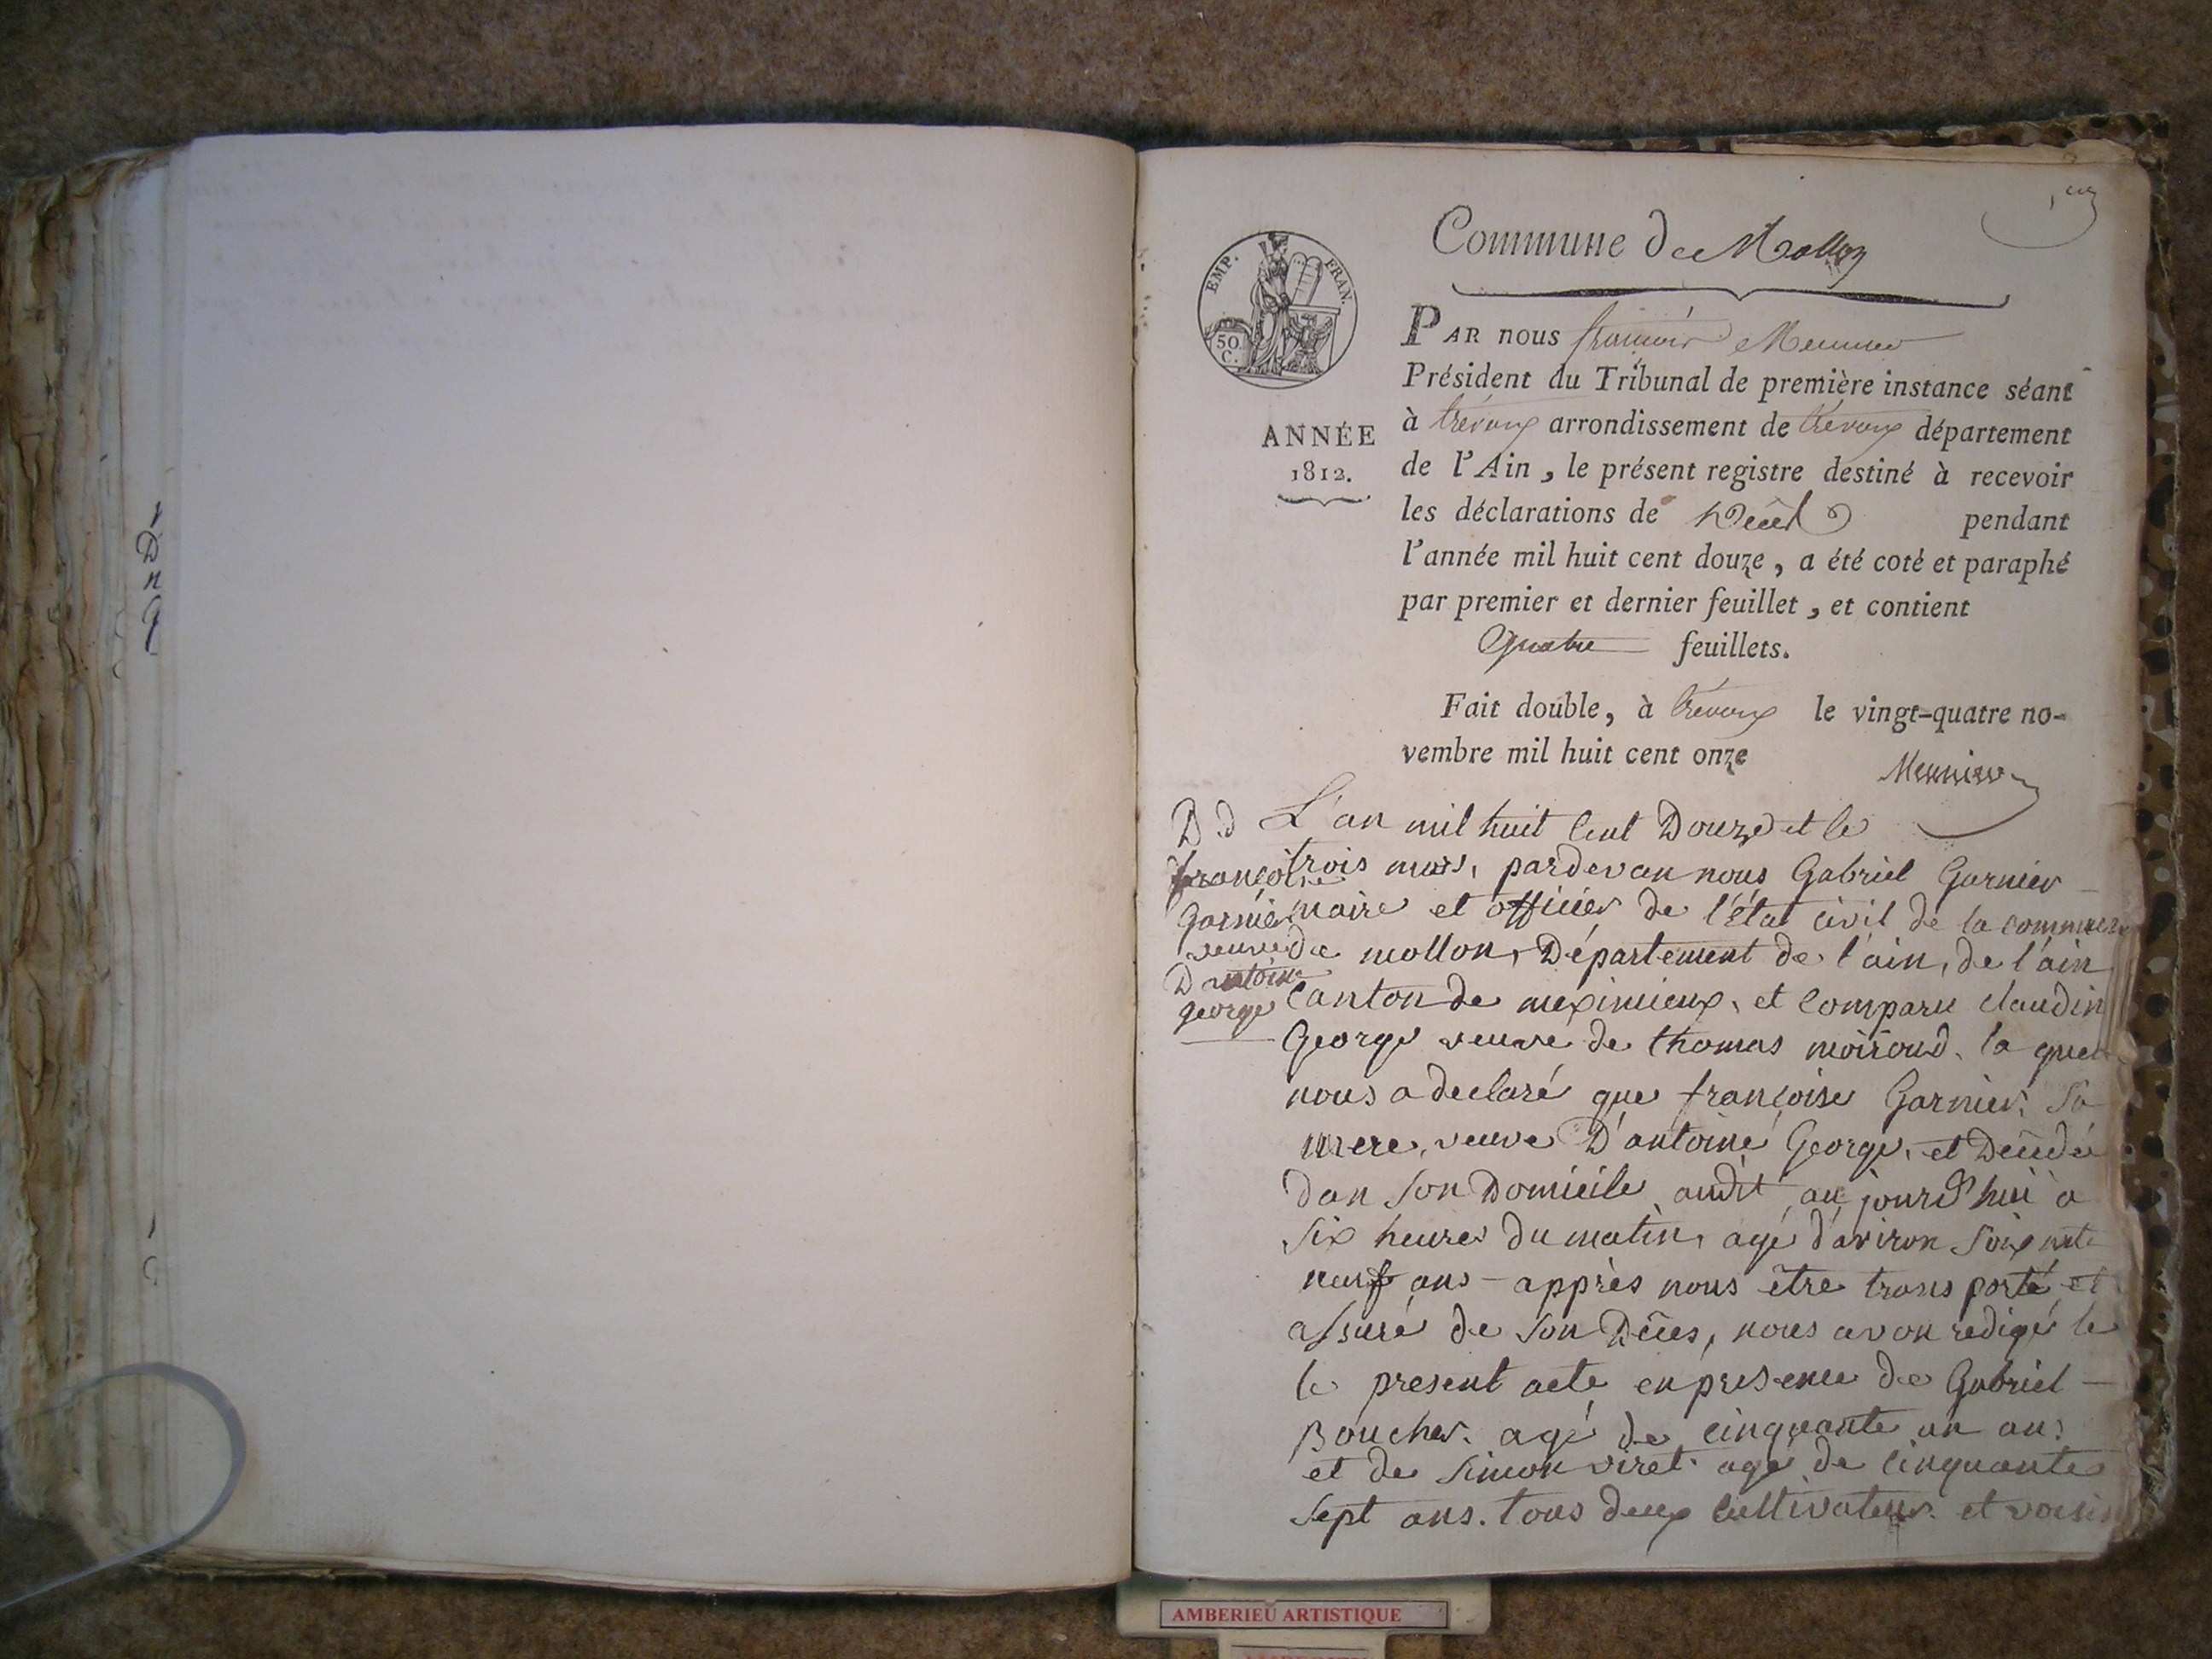 Commune de Mollon
EMP. FRAN.
50.
C.
ANNÉE
1812.
PAR nous françois Meunier
Président du Tribunal de première instance séant
à trévoux arrondissement de trévoux département
de l'Ain, le présent registre destiné à recevoir
les déclarations de Décès pendant
l'année mil huit cent douze, a été coté et paraphé
par premier et dernier feuillet, et contient
Quatre feuillets.
Fait double, à trévoux le vingt-quatre no-
vembre mil huit cent onze
Meunier
D d
françoise
Garnier
veuve
D antoine
george
L'an mil huit Cent Douze et le
trois mars, pardevan nous Gabriel Garnier
maire et officier de l'état civil de la commune
de mollon, Département de l'ain, de l'ain
Canton de meximieux, et Comparu claudin
George veuve de thomas moiroud, la quel
nous a declaré que françoise Garnier, sa
mere, veuve D'antoine George, et Décédé
dan son Domicile audit aujourd'hui a
six heures du matin, agé d'aviron soixante
neuf ans - apprès nous être trans porté et
assuré de son Décès, nous avon redigé le
le present acte en presence de Gabriel
Boucher. agé de cinquante un ans
et de simon viret. agé de cinquante
sept ans. tous deux cultivateurs. et voisin
AMBERIEU ARTISTIQUE